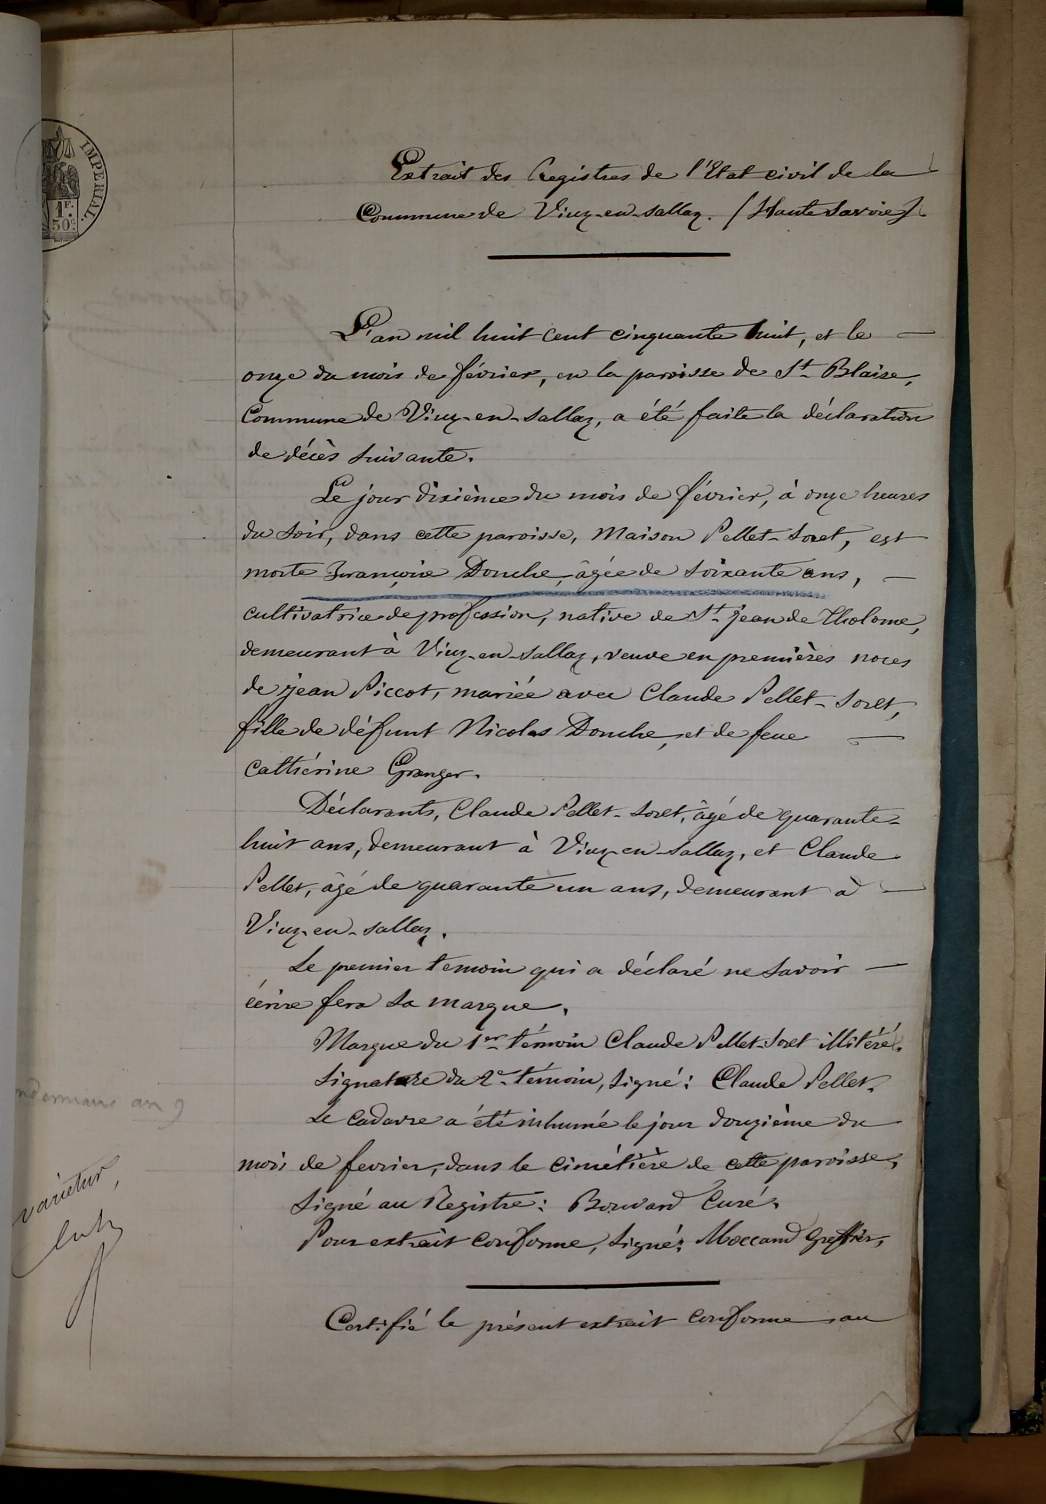 IMPERIAL.
1F.
50c
Extrait des Registres de l'Etat civil de la
Commune de Viuz-en-Sallaz. (Haute Savoie).
L'an mil huit cent cinquante huit, et le
onze du mois de février, en la paroisse de St. Blaise,
Commune de Viuz-en-Sallaz, a été faite la déclaration
de décès suivante.
Le jour dixième du mois de février, à onze heures
du soir, dans cette paroisse, Maison Pellet-Soret, est
morte Françoise Donche, âgée de soixante ans,
cultivatrice de profession, native de St. Jean de Tholome,
demeurant à Viuz-en-Sallaz, veuve en premières noces
de Jean Piccot, mariée avec Claude Pellet-Soret,
fille de défunt Nicolas Donche, et de feue
Cathérine Granger.
Déclarants, Claude Pellet-Soret, âgé de quarante-
huit ans, demeurant à Viuz-en-Sallaz, et Claude
Pellet, âgé de quarante un ans, demeurant à
Viuz-en-Sallaz.
Le premier temoin qui a déclaré ne savoir
écrire fera sa marque.
Marque du 1er témoin Claude Pellet-Soret illitéré.
Signature du 2e témoin, signé: Claude Pellet.
Le cadavre a été inhumé le jour douzième du
mois de fevrier, dans le cimétière de cette paroisse,
Signé au Registre: Bouvard Curé.
Pour extrait conforme, signé: Moccand Greffier,
Certifié le présent extrait conforme au
an 9
varietur,